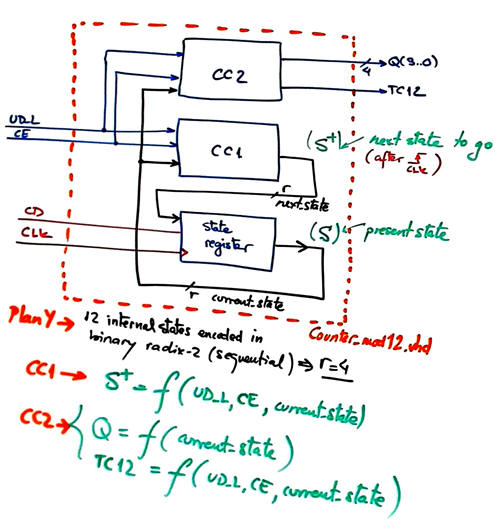 CC2
4
Q(3..0)
TC12
UD_L
CE
CC1
(S+) next state to go
(after CLK)
r
next_state
CD
CLK
state
register
(S) present state
r current_state
Plan Y → 12 internal states encoded in
binary radix-2 (sequential) ⇒ r=4
Counter_mod12.vhd
CC1 → S+ = f(UD_L, CE, current_state)
CC2 → Q = f(current_state)
TC12 = f(UD_L, CE, current_state)